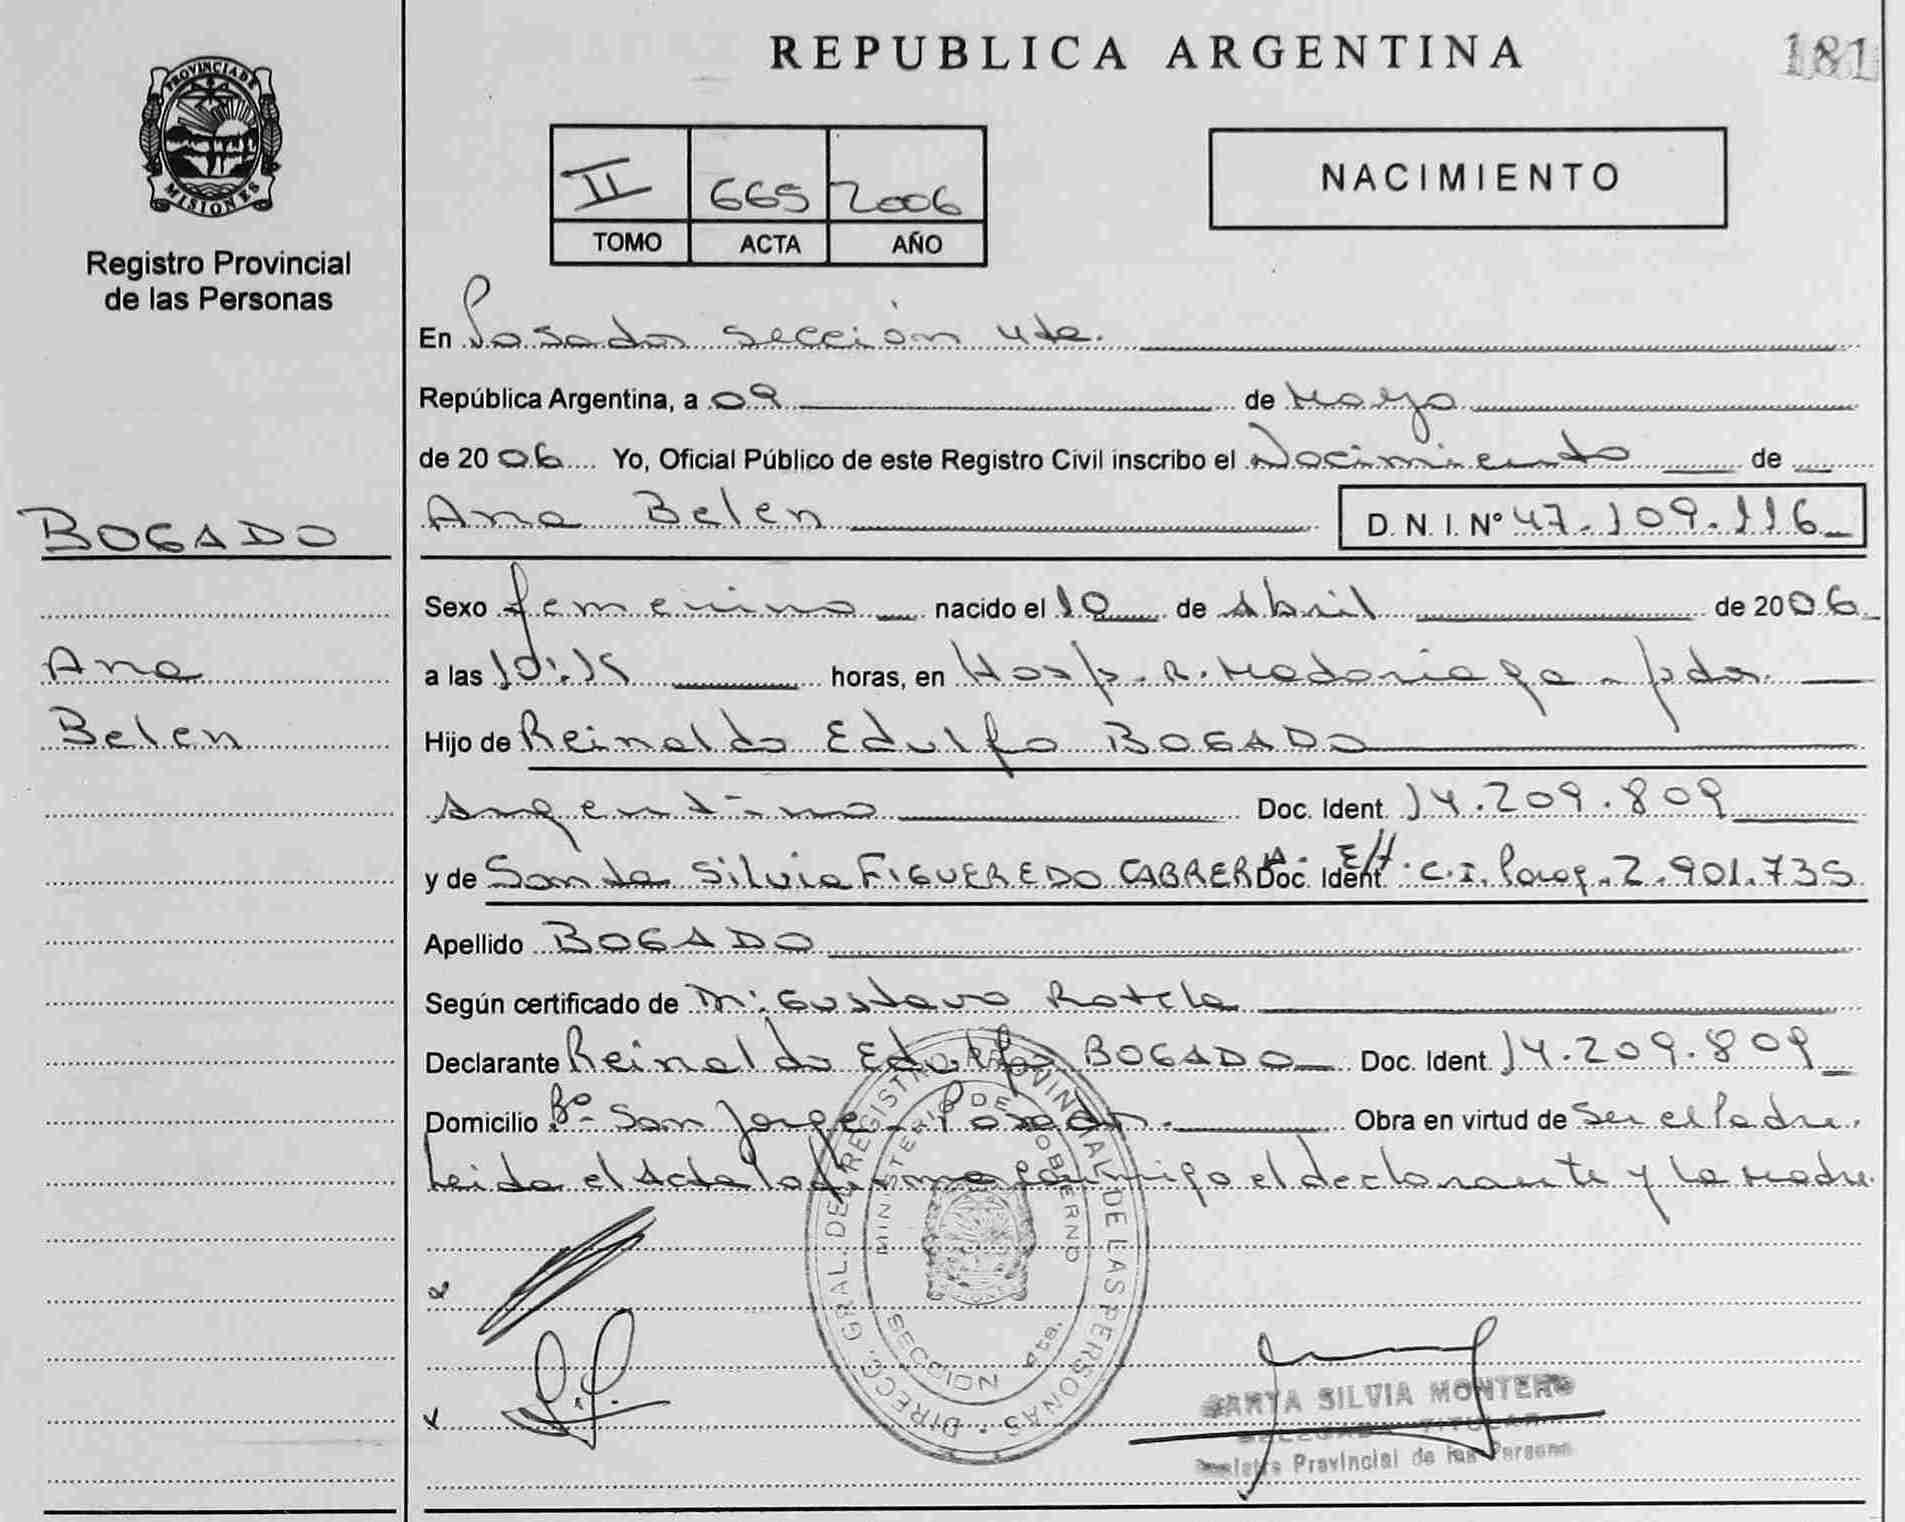 REPUBLICA ARGENTINA
181
PROVINCIA DE MISIONES
Registro Provincial
de las Personas
II 665 2006
TOMO ACTA AÑO
NACIMIENTO
En Posadas sección 4ta.
República Argentina, a 09 de Mayo
de 2006 Yo, Oficial Público de este Registro Civil inscribo el Nacimiento de
Ana Belen D. N. I. N° 47.109.116
BOGADO
Ana
Belen
Sexo femenino nacido el 10 de Abril de 2006
a las 10:15 horas, en Hosp. R. Madariaga - pdas.
Hijo de Reinaldo Edulfo BOGADO
Argentino Doc. Ident. 14.209.809
y de Santa Silvia FIGUEREDO CABRERA. Doc. Ident. C.I. Parag. 2.901.735
Apellido BOGADO
Según certificado de Gustavo Rotela
Declarante Reinaldo Edulfo BOGADO Doc. Ident. 14.209.809
Domicilio Bº San Jorge - Posadas. Obra en virtud de Ser el Padre.
Leida el Acta la firma conmigo el declarante y la Madre
DIRECC. GRAL. DEL REGISTRO PROVINCIAL DE LAS PERSONAS
MINISTERIO DE GOBIERNO
SECCION 4ta.
SILVIA MONTERO
DELEGADA TITULAR
Registro Provincial de las Personas